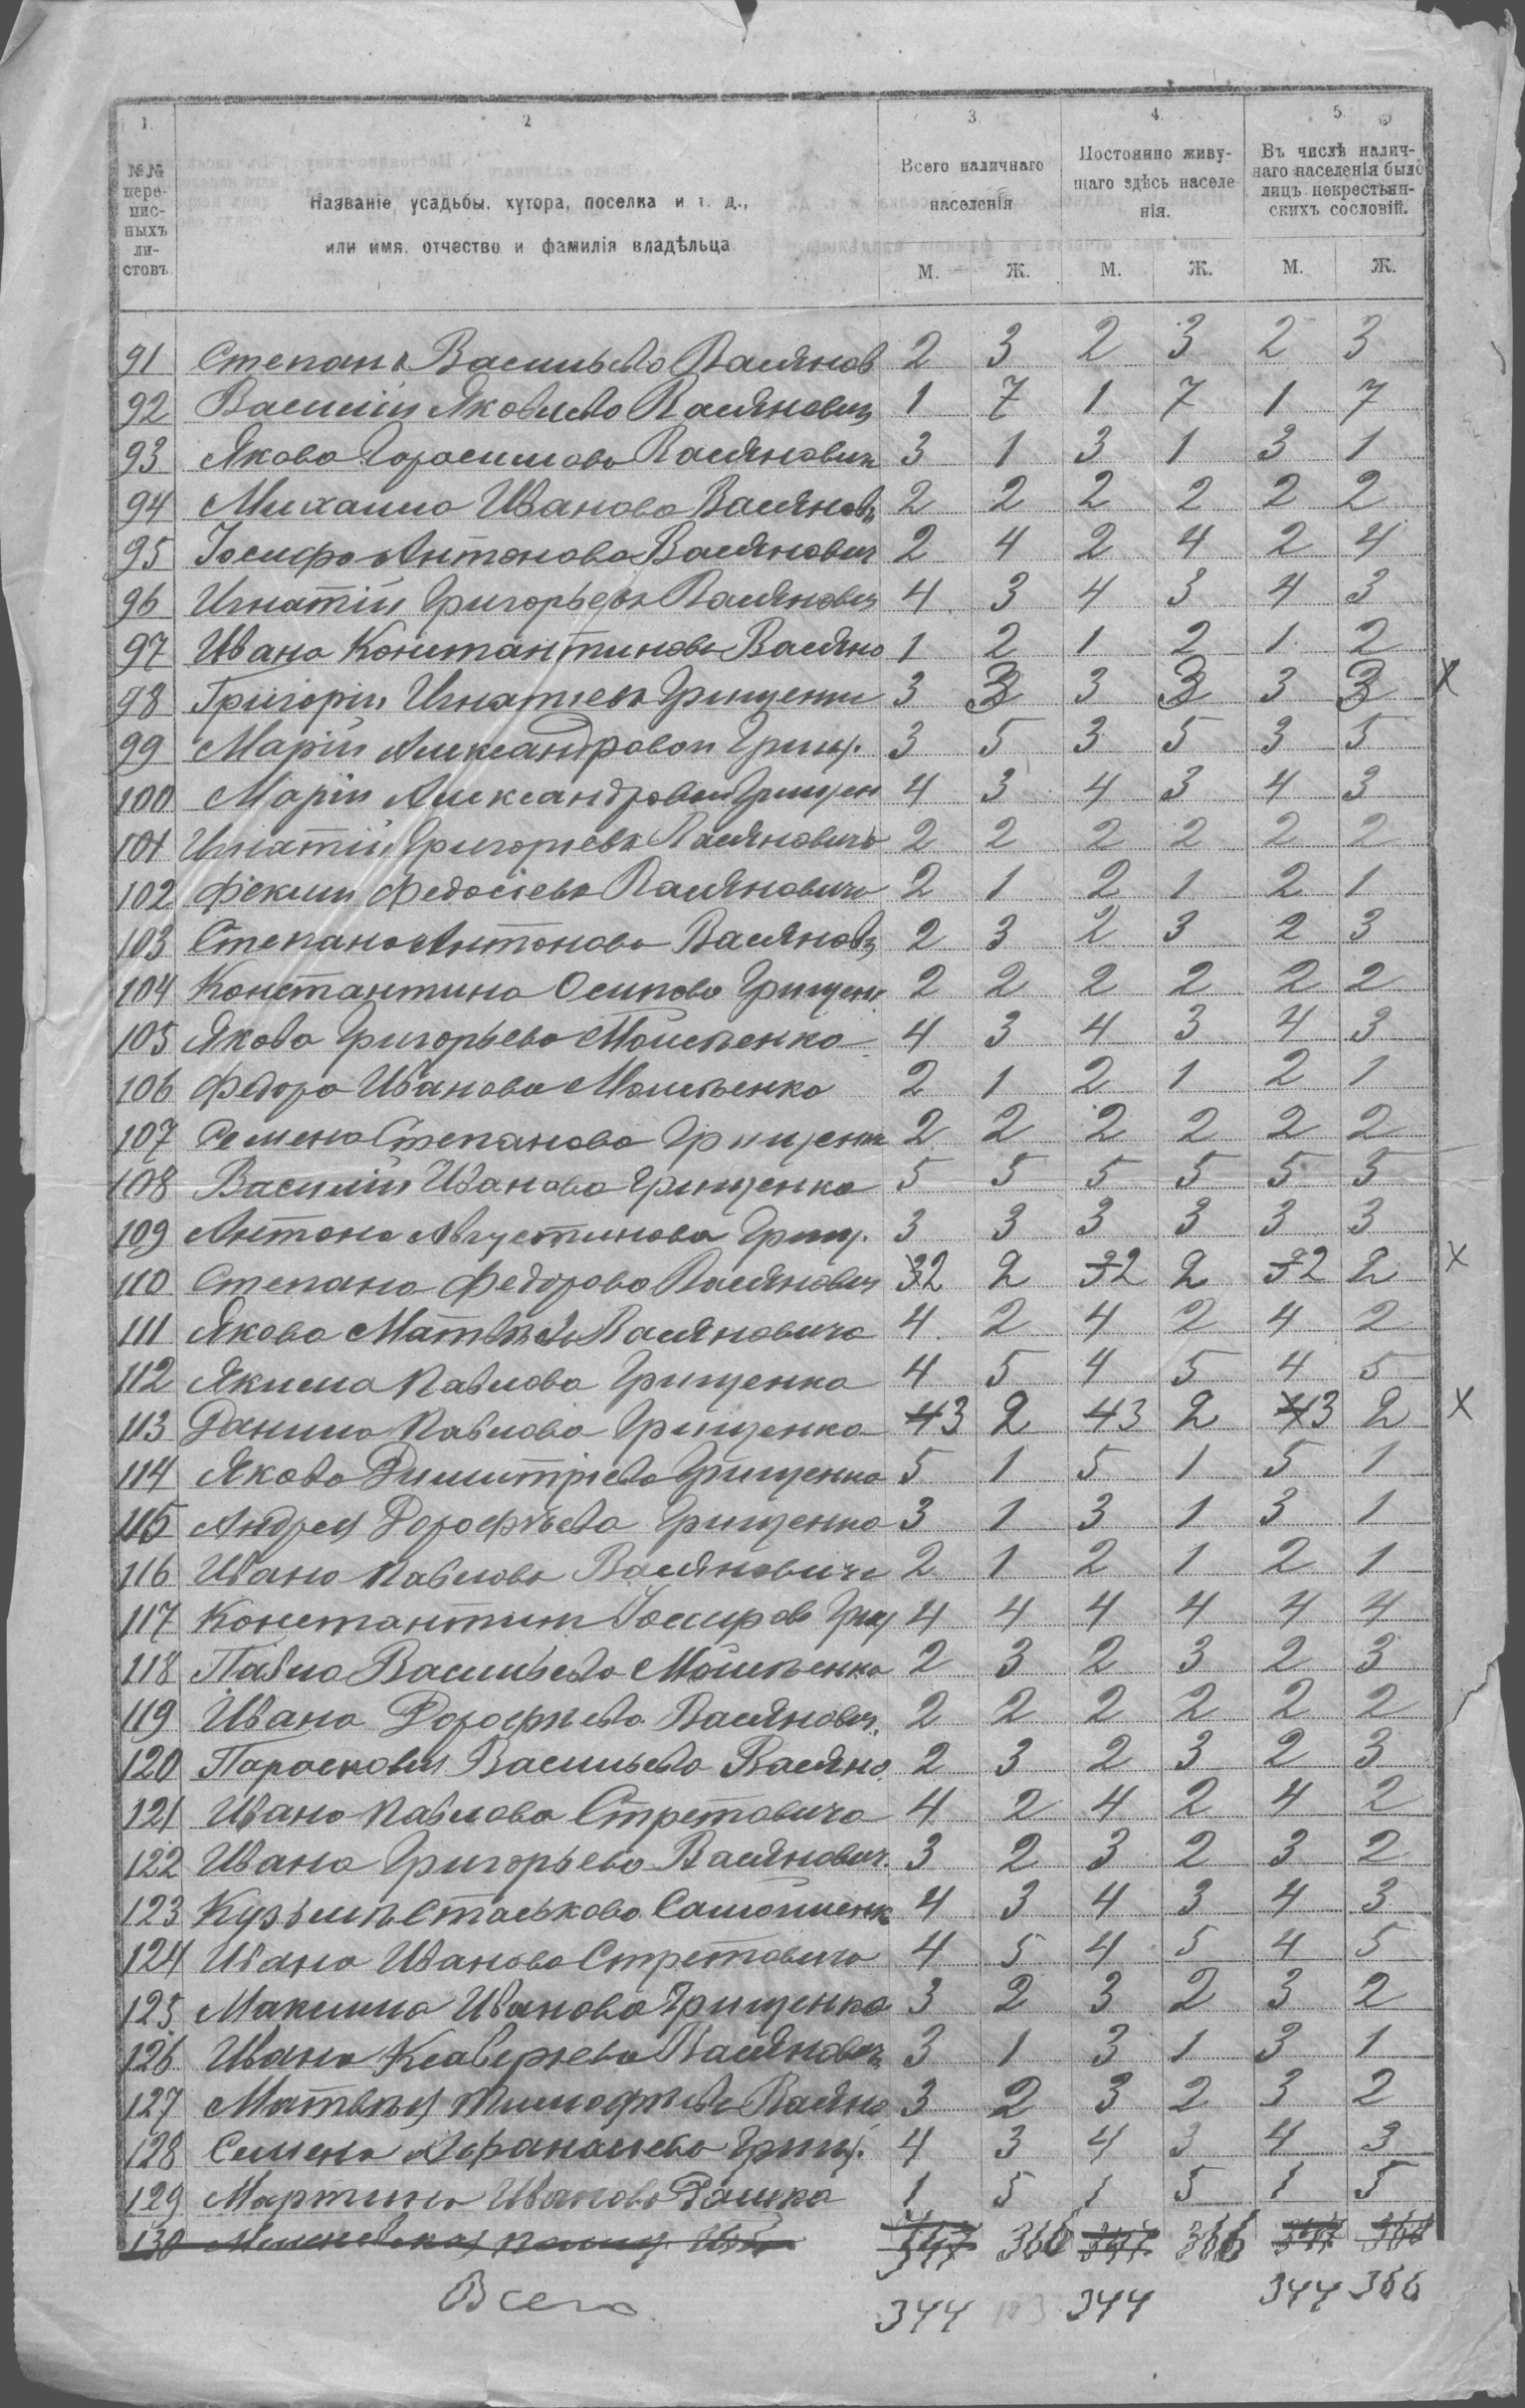 1. 2 3. 4. 5.
№№ пере- пис- ныхъ ли- стовъ.
Названіе усадьбы, хутора, поселка и т. д.,
или имя, отчество и фамилія владѣльца.
Всего наличнаго
населенія
Постоянно живу-
щаго здѣсь населе
нія.
Въ числѣ налич-
наго населенія было
лицъ некрестьян-
скихъ сословій.
М. Ж. М. Ж. М. Ж.
91 Степанъ Васильевъ Васянов 2 3 2 3 2 3
92 Василій Яковлевъ Васянович 1 7 1 7 1 7
93 Яковъ Горасимовъ Васянович 3 1 3 1 3 1
94 Михаилъ Ивановъ Васянович 2 2 2 2 2 2
95 Іосифъ Антоновъ Васянович 2 4 2 4 2 4
96 Игнатій Григорьевъ Васянович 4 3 4 3 4 3
97 Иванъ Константиновъ Васяно 1 2 1 2 1 2
98 Григорій Игнатіевъ Грищенк 3 3 3 3 3 3 х
99 Марій Александровой Грищ. 3 5 3 5 3 5
100 Марій Александровой Грищен 4 3 4 3 4 3
101 Игнатій Григоріевъ Васяновичъ 2 2 2 2 2 2
102 Федосіевъ Васяновичъ 2 1 2 1 2 1
103 Степанъ Антоновъ Васянович 2 3 2 3 2 3
104 Константинъ Осиповъ Грищен 2 2 2 2 2 2
105 Яковъ Григорьевъ Моисѣенко 4 3 4 3 4 3
106 Федоръ Ивановъ Моисѣенко 2 1 2 1 2 1
107 Семенъ Степановъ Грищенк 2 2 2 2 2 2
108 Василій Ивановъ Грищенко 5 5 5 5 5 5
109 Антонъ Августиновъ Грищ. 3 3 3 3 3 3
110 Степанъ Федоровъ Васянович 32 2 32 2 32 2 х
111 Яковъ Матвѣевъ Васяновичъ 4 2 4 2 4 2
112 Якимъ Павловъ Грищенко 4 5 4 5 4 5
113 Данило Павловъ Грищенко 43 2 43 2 43 2 х
114 Яковъ Димитріевъ Грищенко 5 1 5 1 5 1
115 Андрей Дорофѣевъ Грищенко 3 1 3 1 3 1
116 Иванъ Павловъ Васяновичъ 2 1 2 1 2 1
117 Константин Іосифов Грищ 4 4 4 4 4 4
118 Павло Васильевъ Моисѣенко 2 3 2 3 2 3
119 Иванъ Дорофѣевъ Васянович. 2 2 2 2 2 2
120 Парасковія Васильевъ Васяно. 2 3 2 3 2 3
121 Иванъ Павловъ Стретовичъ 4 2 4 2 4 2
122 Иванъ Григорьевъ Васянович. 3 2 3 2 3 2
123 Кузьмѣ Стаськовъ Самойленк 4 3 4 3 4 3
124 Иванъ Ивановъ Стретовичъ 4 5 4 5 4 5
125 Максимъ Ивановъ Грищенко 3 2 3 2 3 2
126 Иванъ Ксаверіевъ Васянович 3 1 3 1 3 1
127 Матвѣй Тимофѣевъ Васяно 3 2 3 2 3 2
128 Семенъ Афанасьевъ Грищ. 4 3 4 3 4 3
129 Мартинъ Ивановъ 1 5 1 5 1 5
130 347 366 347 366 347 366
Всего 344 344 344 366